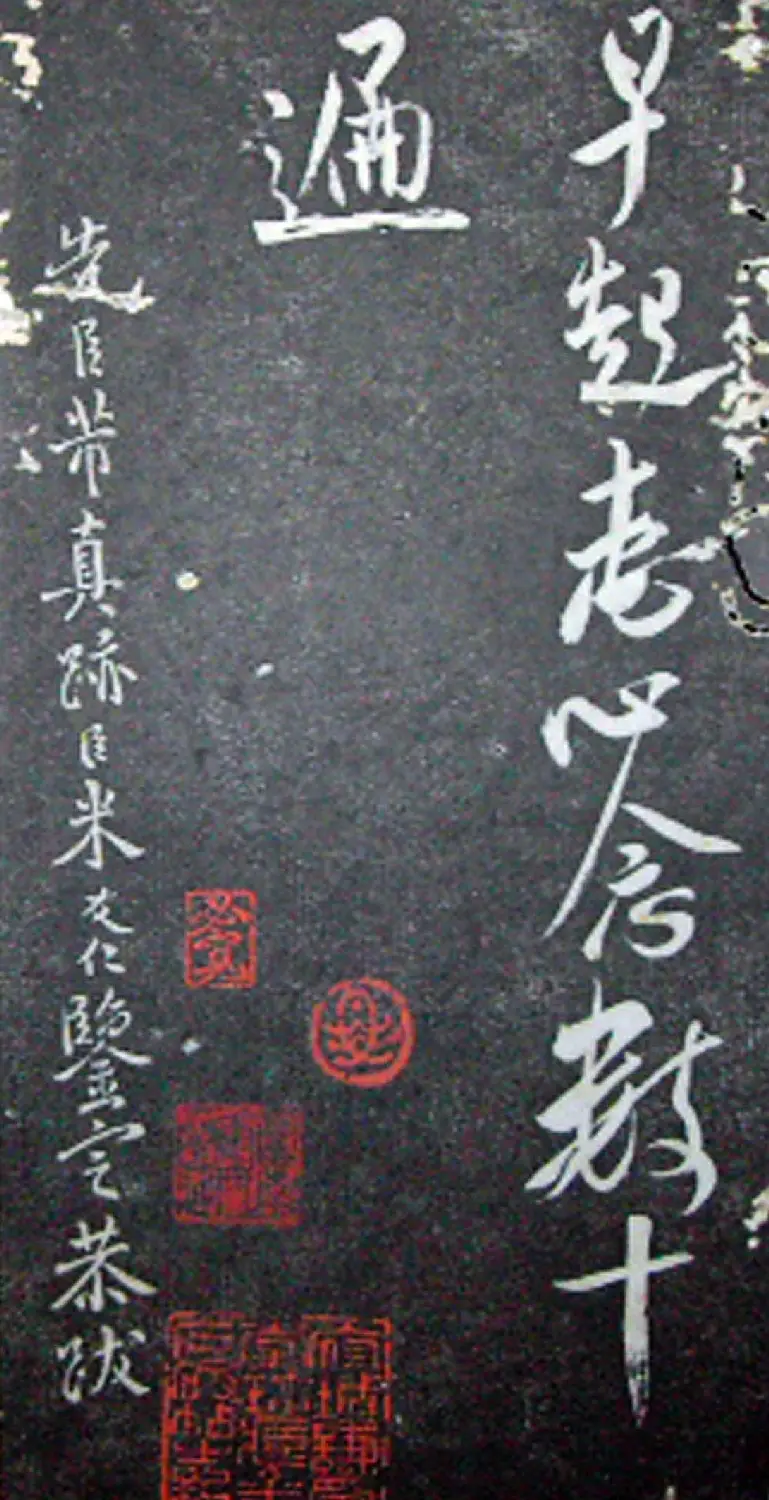 早起志心念數十
遍
先臣芾真跡臣米友仁鑒定恭跋